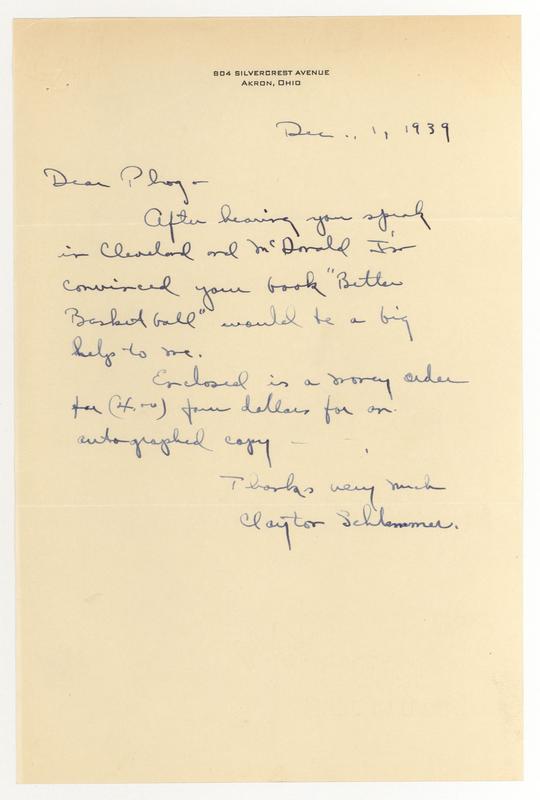 804 SILVERCREST AVENUE
AKRON, OHIO
Dec., 1, 1939
Dear Phog -
After hearing you speak
in Cleveland and McDonald I'm
convinced your book "Better
Basketball" would be a big
help to me.
Enclosed is a money order
for (4.00) four dollars for an
autographed copy -
Thanks very much
Clayton Schlemmer.